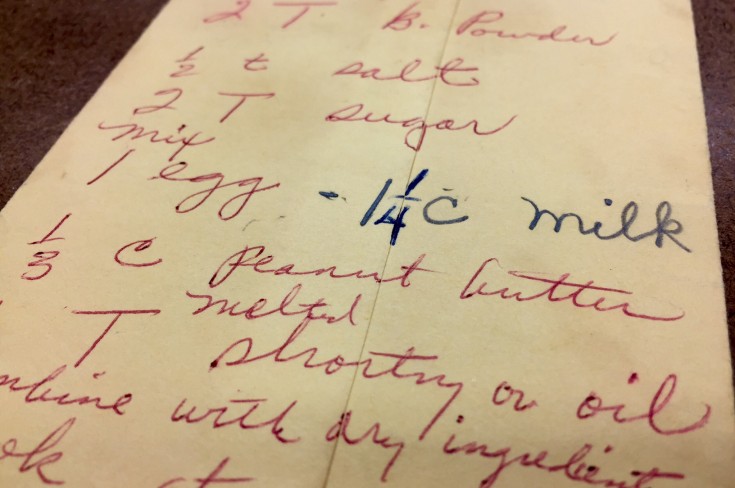 2 T B. Powder
½ t salt
2 T sugar
mix
1 egg - 1¼ C milk
⅓ C peanut butter
T melted
shortng or oil
mbine with dry ingredient
ok at